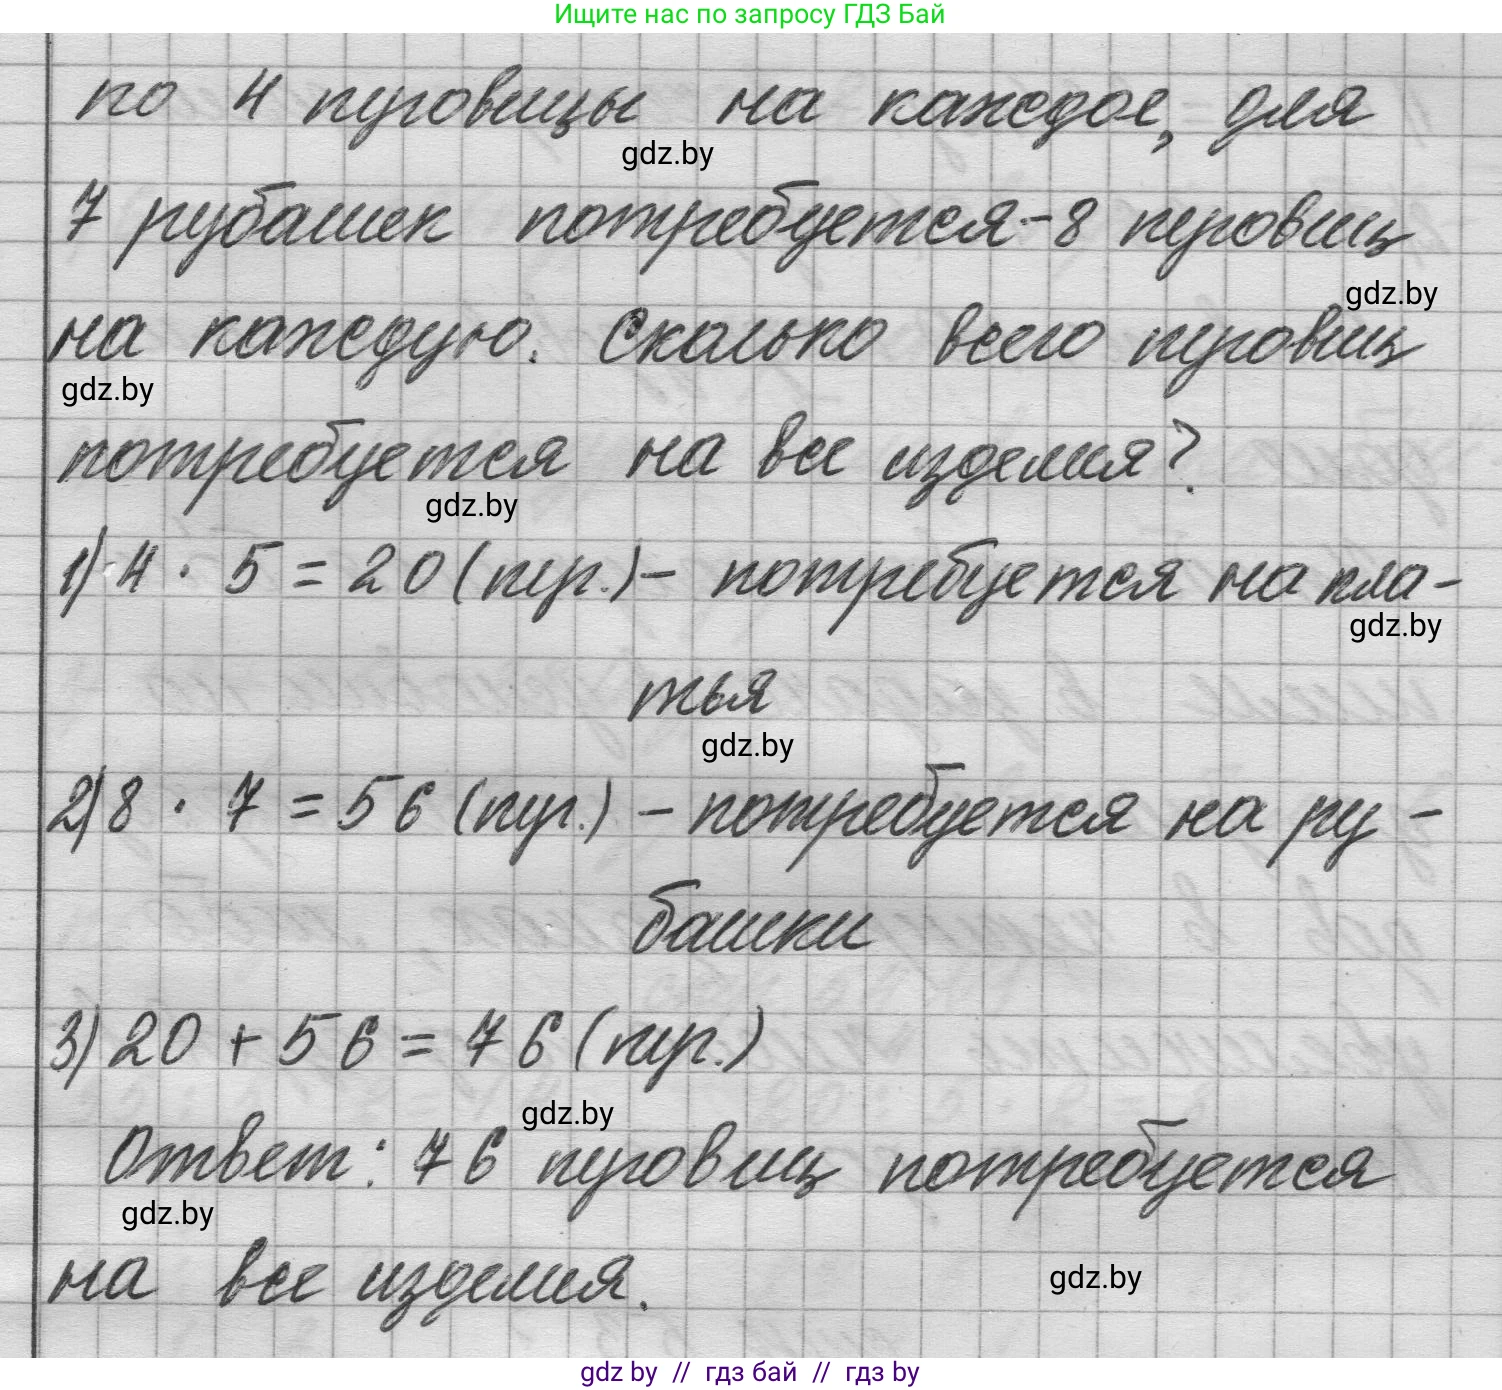 Ищите нас по запросу ГДЗ Бай
по 4 пуговицы на каждое, для
gdz.by
7 рубашек потребуется - 8 пуговиц
gdz.by
на каждую. Сколько всего пуговиц
gdz.by
потребуется на все изделия?
gdz.by
1) 4 · 5 = 20 (пуг.) - потребуется на пла-
gdz.by
тья
gdz.by
2) 8 · 7 = 56 (пуг.) - потребуется на ру-
башки
3) 20 + 56 = 76 (пуг.)
gdz.by
Ответ: 76 пуговиц потребуется
gdz.by
на все изделия.
gdz.by
gdz by // гдз бай // гдз by